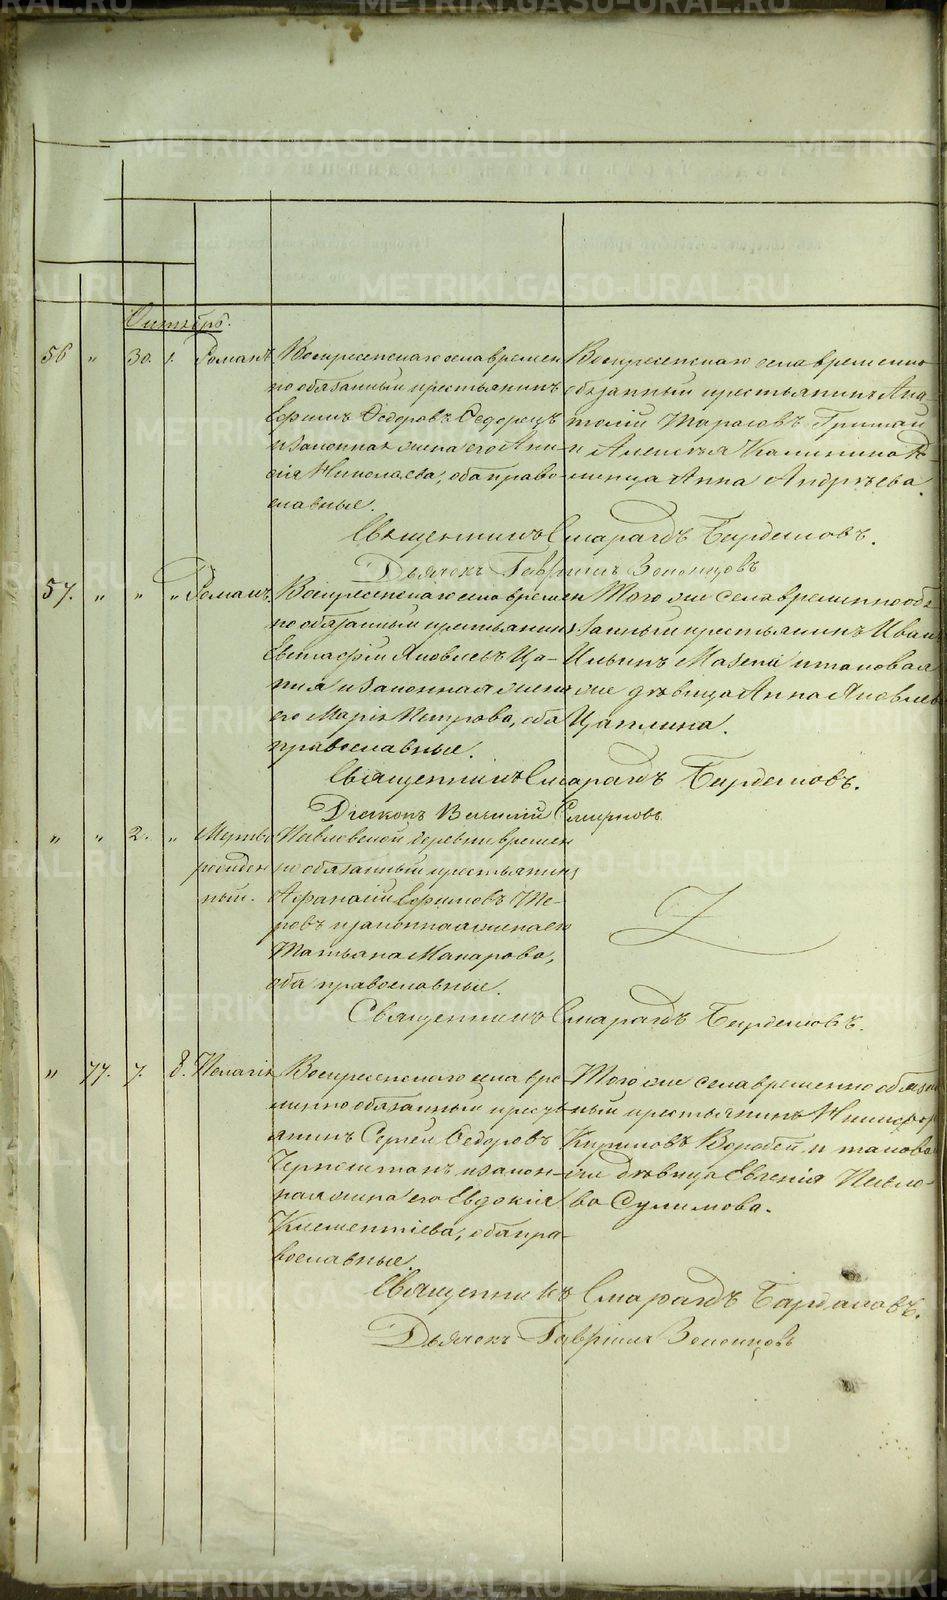 Октябрь.
56 " 30. 1. Романъ Воскресенскаго села времен
но обязанный крестьянинъ
Ефимъ Ѳедоровъ Федорецъ
и законная жена его Ани
сія Николаева, оба право
славные.
Воскресенскаго села временно
обязанный крестьянинъ Ана
толій Тарасовъ
и Алексѣя Калинина
Анна Андрѣева.
Священникъ Смарагдъ Бирдемовъ.
Дьячекъ Гавріилъ
57. " " " Романъ. Воскресенскаго села времен
но обязанный крестьянинъ
Евстафій Яковлевъ Ца-
пля и законная жена
его Марія Петрова, оба
православные.
Того же села временно обя
занный крестьянинъ Иванъ
Ильинъ Мазепа и таковая
же дѣвица Анна Яковлева
Цаплина.
Священникъ Смарагдъ Бирдемовъ.
Діаконъ Василий Смирновъ
" " 2. " Мертво
рожден
ный.
Павловской деревни времен
но обязанный крестьянинъ
Афанасий Ефимовъ
и законная жена его
Татьяна Макарова,
оба православные.
Священникъ Смарагдъ Бирдемовъ.
" 77. 7. 8. Пелагія Воскресенскаго села вре-
менно обязанный кресть
янинъ Сергѣй Ѳедоровъ
и закон-
ная жена его Евдокія
Климентіева, оба пра-
вославные.
Того же села временно обязан
ный крестьянинъ Никифоръ
Кириловъ Воробей и такова
я дѣвица Евгенія Павло-
ва Сулимова.
Священникъ Смарагдъ Бирдемовъ.
Дьячекъ Гавріилъ
METRIKI.GASO-URAL.RU